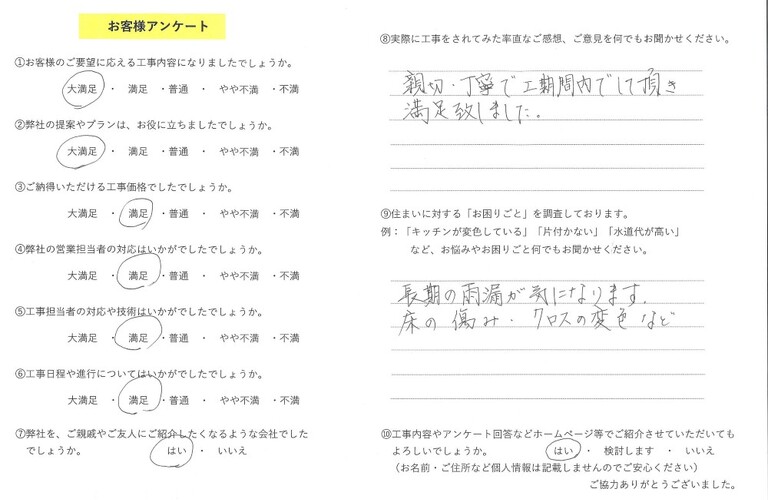 お客様アンケート
①お客様のご要望に応える工事内容になりましたでしょうか。
大満足 ・ 満足 ・普通 ・ やや不満 ・不満
②弊社の提案やプランは、お役に立ちましたでしょうか。
大満足 ・ 満足 ・普通 ・ やや不満 ・不満
③ご納得いただける工事価格でしたでしょうか。
大満足 ・ 満足 ・普通 ・ やや不満 ・不満
④弊社の営業担当者の対応はいかがでしたでしょうか。
大満足 ・ 満足 ・普通 ・ やや不満 ・不満
⑤工事担当者の対応や技術はいかがでしたでしょうか。
大満足 ・ 満足 ・普通 ・ やや不満 ・不満
⑥工事日程や進行についてはいかがでしたでしょうか。
大満足 ・ 満足 ・普通 ・ やや不満 ・不満
⑦弊社を、ご親戚やご友人にご紹介したくなるような会社でした
でしょうか。 はい ・ いいえ
⑧実際に工事をされてみた率直なご感想、ご意見を何でもお聞かせください。
親切・丁寧で工期間内でして頂き
満足致しました。
⑨住まいに対する「お困りごと」を調査しております。
例：「キッチンが変色している」「片付かない」「水道代が高い」
など、お悩みやお困りごと何でもお聞かせください。
長期の雨漏が気になります.
床の傷み・クロスの変色など
⑩工事内容やアンケート回答などホームページ等でご紹介させていただいても
よろしいでしょうか。 はい ・ 検討します ・ いいえ
（お名前・ご住所など個人情報は記載しませんのでご安心ください）
ご協力ありがとうございました。